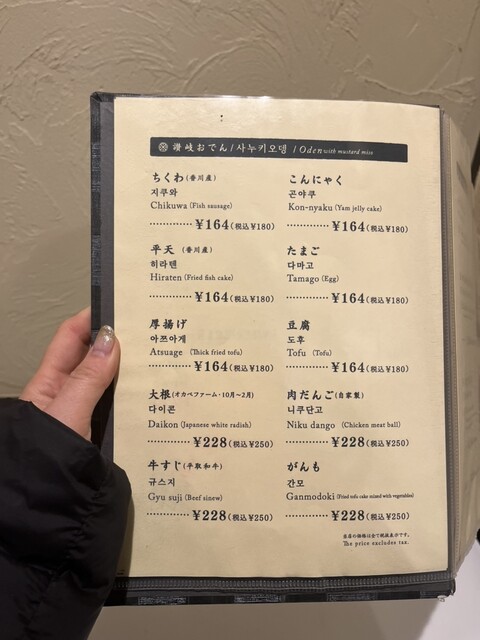 讃岐おでん/사누키오뎅 /Oden with mustard miso
ちくわ(香川産)
지쿠와
Chikuwa (Fish sausage)
············¥164(税込¥180)
こんにゃく
곤야쿠
Kon-nyaku (Yam jelly cake)
············¥164(税込¥180)
平天 (香川産)
히라텐
Hiraten (Fried fish cake)
············¥164(税込¥180)
たまご
다마고
Tamago (Egg)
············¥164(税込¥180)
厚揚げ
아쯔아게
Atsuage (Thick fried tofu)
············¥164(税込¥180)
豆腐
도후
Tofu (Tofu)
············¥164(税込¥180)
大根(オカベファーム・10月〜2月)
다이콘
Daikon (Japanese white radish)
············¥228(税込¥250)
肉だんご(自家製)
니쿠단고
Niku dango (Chicken meat ball)
············¥228(税込¥250)
牛すじ(平取和牛)
규스지
Gyu suji (Beef sinew)
············¥228(税込¥250)
がんも
간모
Ganmodoki (Fried tofu cake mixed with vegetables)
············¥228(税込¥250)
当店の価格は全て税抜表示です。
The price excludes tax.